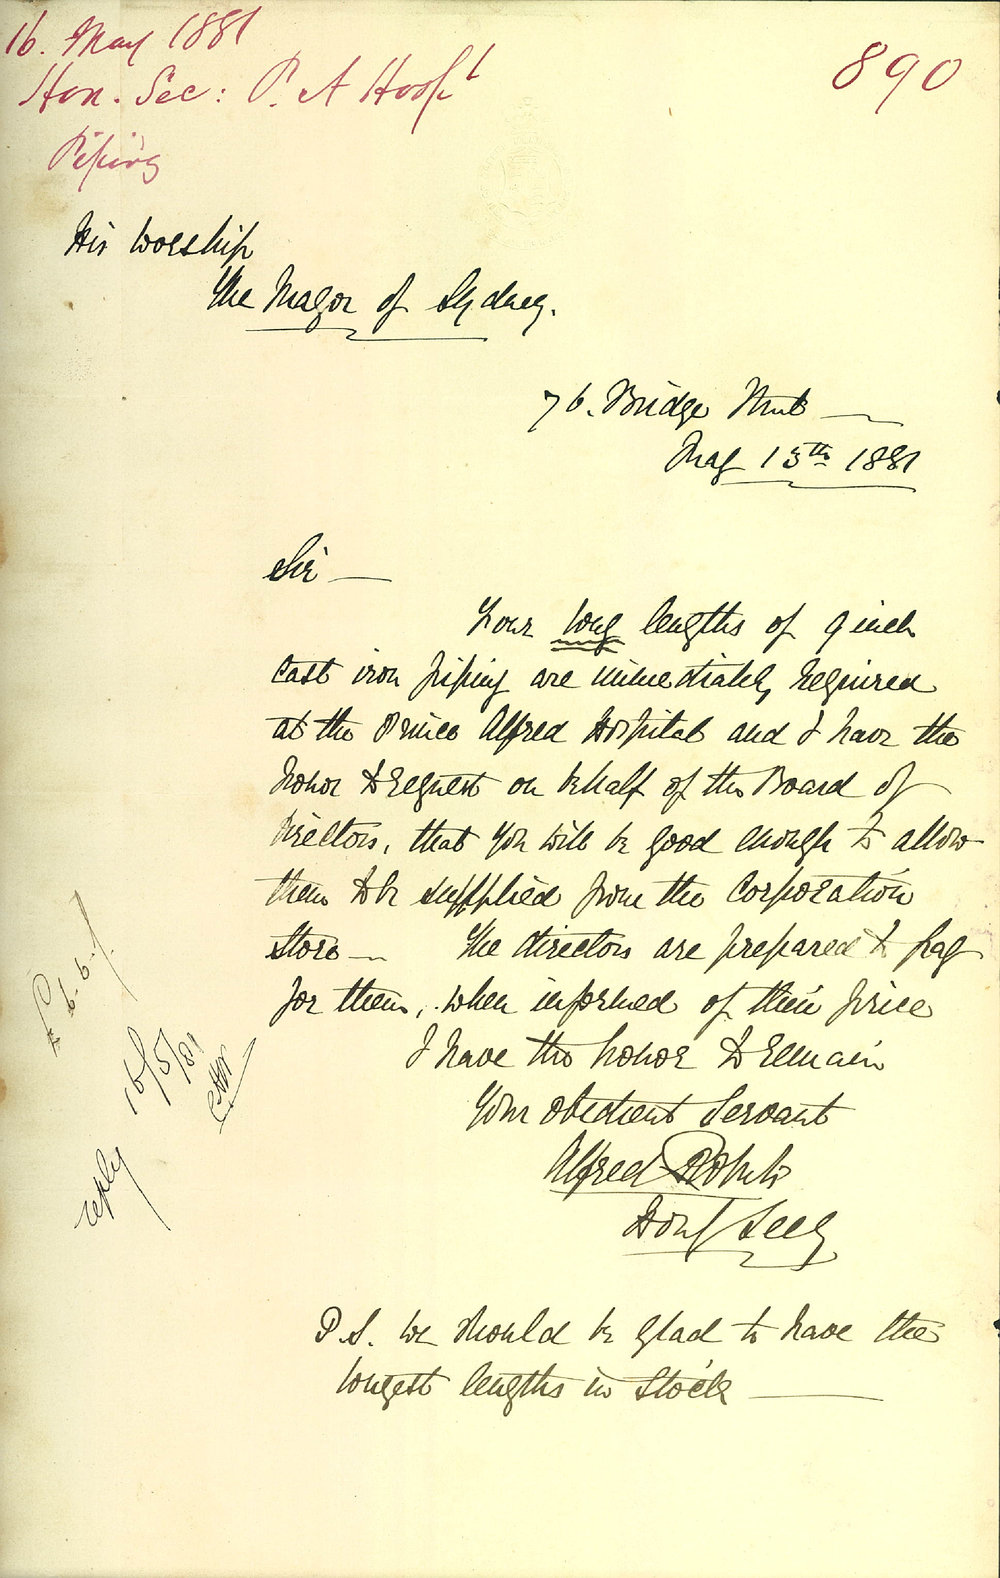 16. May 1881
Hon. Sec: P. A Hospl
Piping
890
His Worship
The Mayor of Sydney.
76. Bridge Street
May 15th 1881
Sir —
Four long lengths of 9 inch
cast iron piping are immediately required
at the Prince Alfred Hospital and I have the
honor to request on behalf of the Board of
directors, that you will be good enough to allow
them to be supplied from the Corporation
Store — The directors are prepared to pay
for them, when informed of their price
I have the honor to remain
Your obedient Servant
Alfred Roberts
Hony Secy
P.S. We should be glad to have the
longest lengths in Stock —
16/5/81
reply